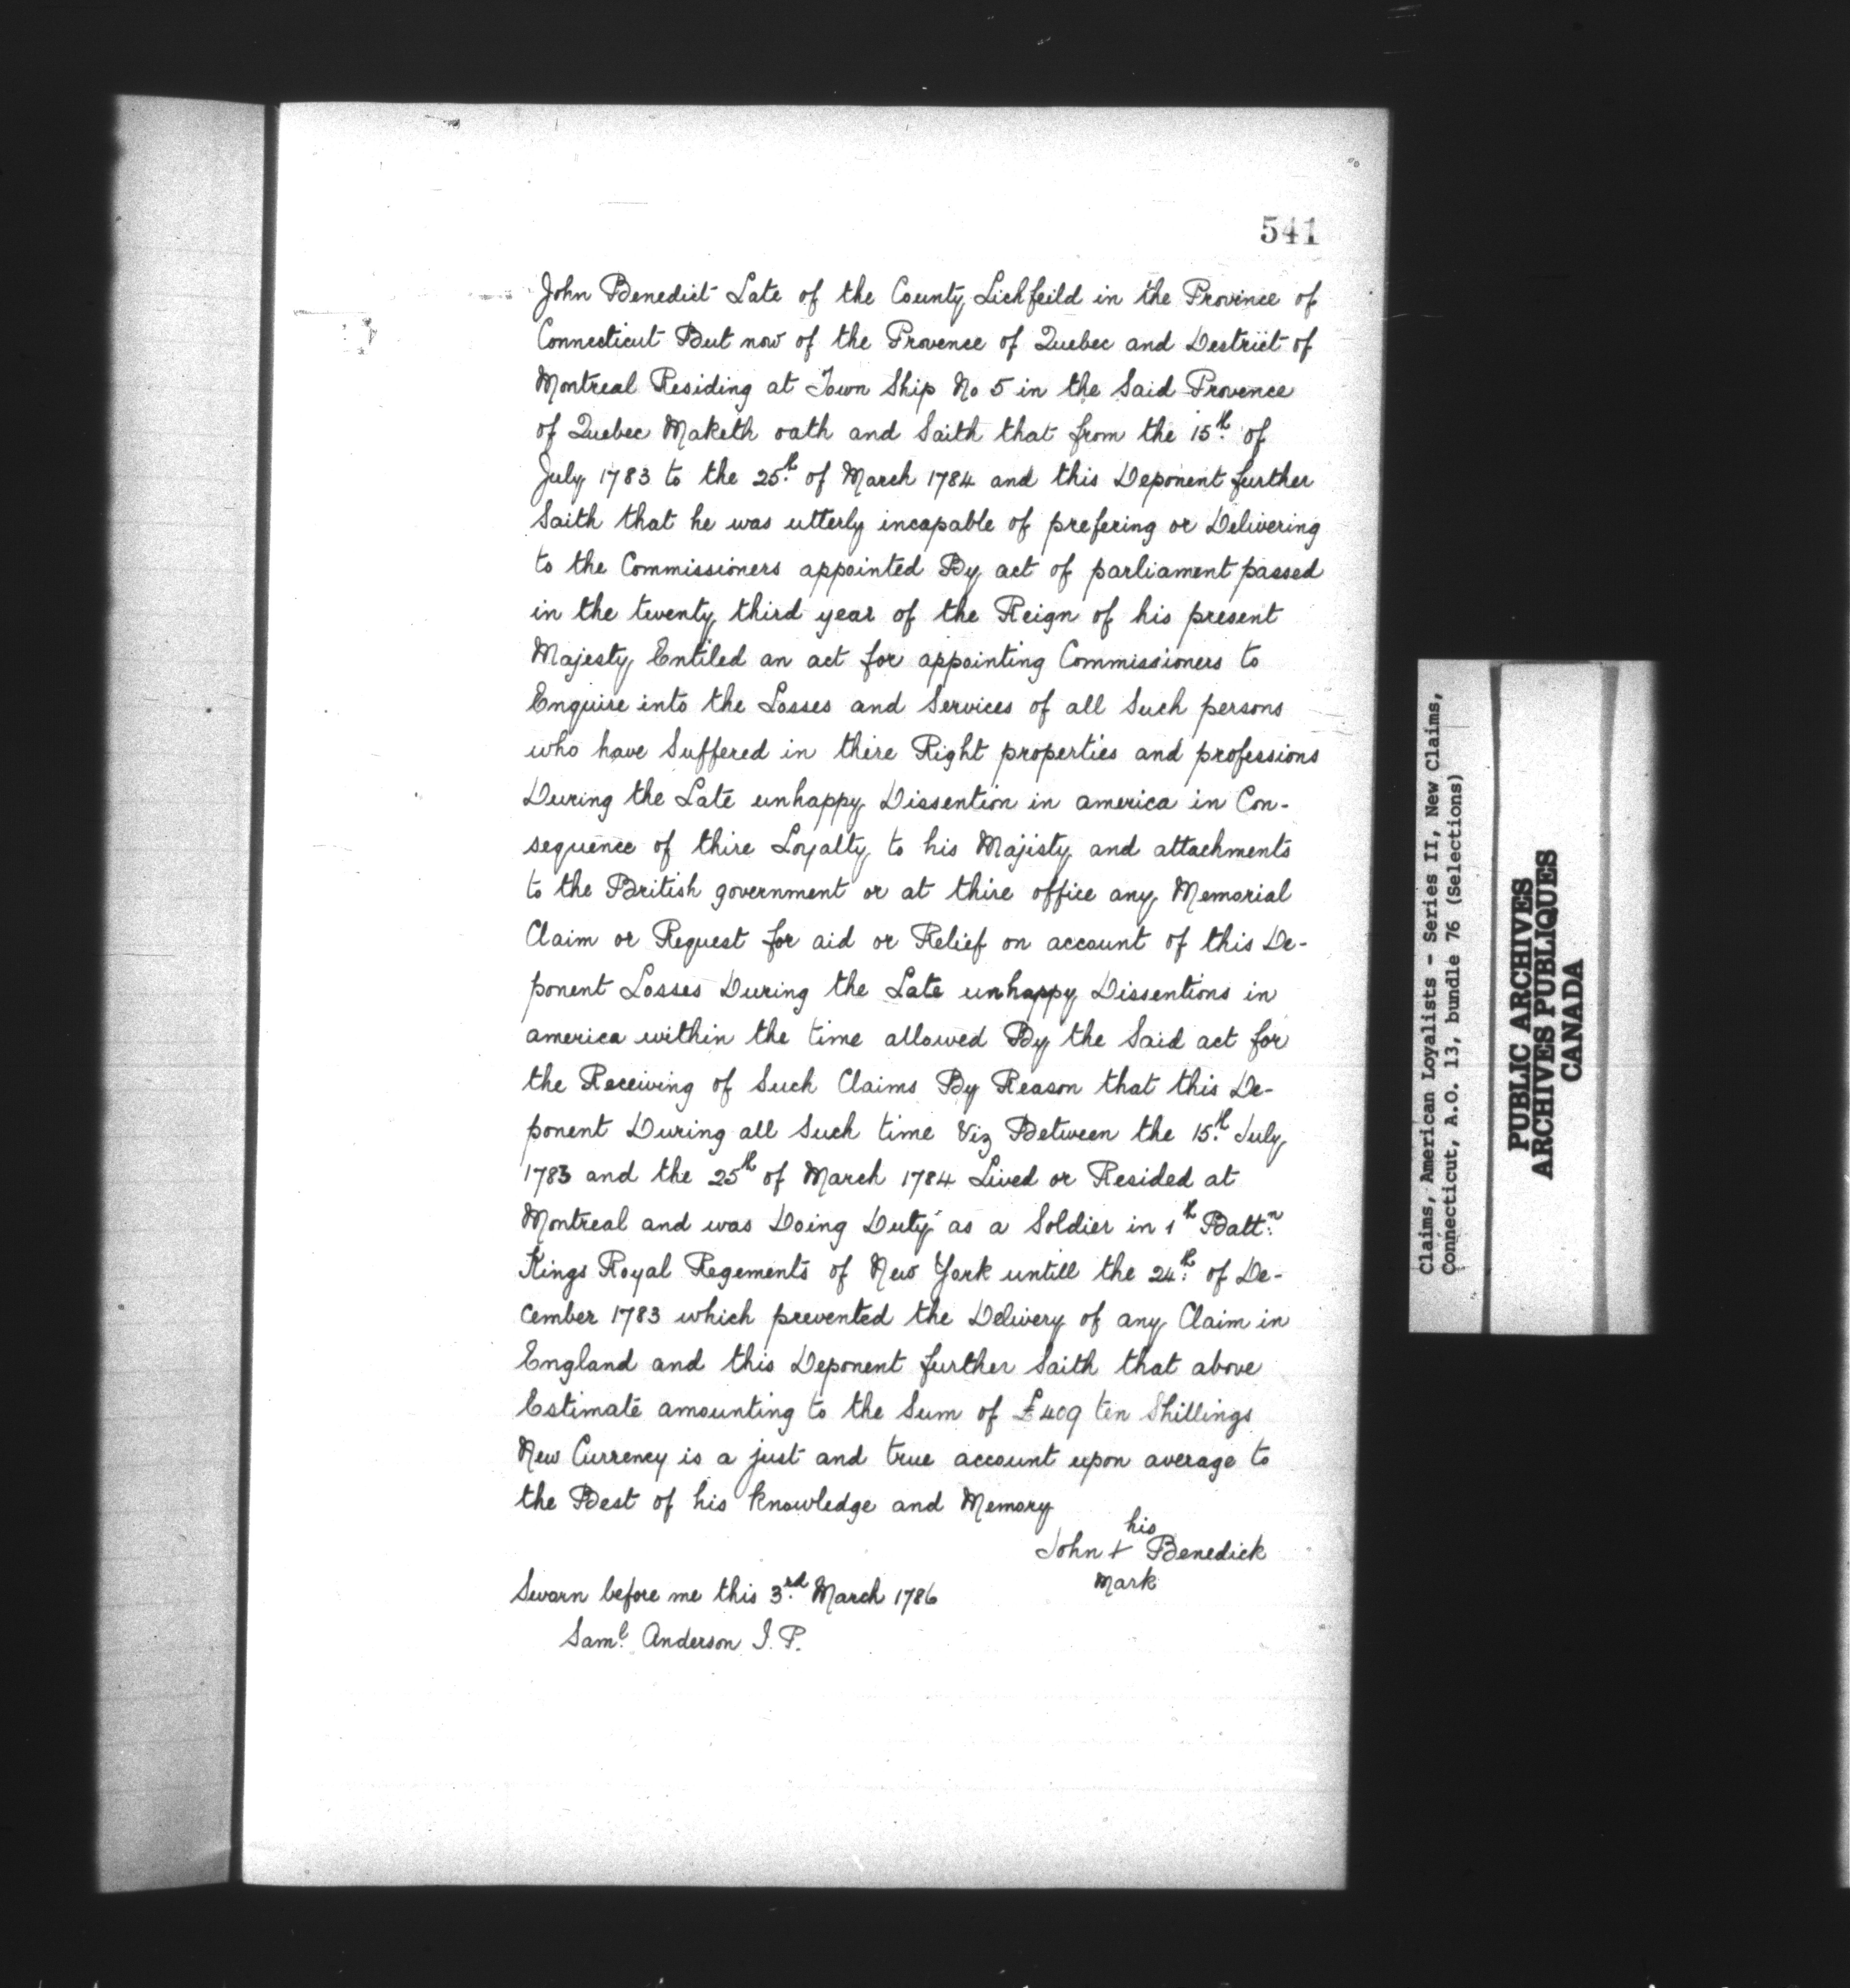 541
John Benedict Late of the County Lichfeild in the Province of
Connecticut But now of the Provence of Quebec and Destrict of
Montreal Residing at Town Ship No 5 in the Said Provence
of Quebec Maketh oath and Saith that from the 15th of
July 1783 to the 25th of March 1784 and this Deponent further
Saith that he was utterly incapable of prefering or Delivering
to the Commissioners appointed By act of parliament passed
in the twenty third year of the Reign of his present
Majesty Entiled an act for appointing Commissioners to
Enquire into the Losses and Services of all Such persons
who have Suffered in there Right properties and professions
During the Late unhappy Dissention in america in Con-
sequence of thire Loyalty to his Majisty and attachments
to the British government or at thire office any Memorial
Claim or Request for aid or Relief on account of this De-
ponent Losses During the Late unhappy Dissentions in
america within the time allowed By the Said act for
the Receiving of Such Claims By Reason that this De-
ponent During all Such time Viz Between the 15th July
1783 and the 25th of March 1784 Lived or Resided at
Montreal and was Doing Duty as a Soldier in 1th Battn
Kings Royal Regements of New York untill the 24th of De-
cember 1783 which prevented the Delivery of any Claim in
England and this Deponent further Saith that above
Estimate amounting to the Sum of £409 ten Shillings
New Currency is a just and true account upon average to
the Best of his knowledge and Memory
his
John + Benedick
Mark
Sworn before me this 3rd March 1786
Saml Anderson J. P.
Claims, American Loyalists - Series II, New Claims,
Connecticut, A.O. 13, bundle 76 (Selections)
PUBLIC ARCHIVES
ARCHIVES PUBLIQUES
CANADA